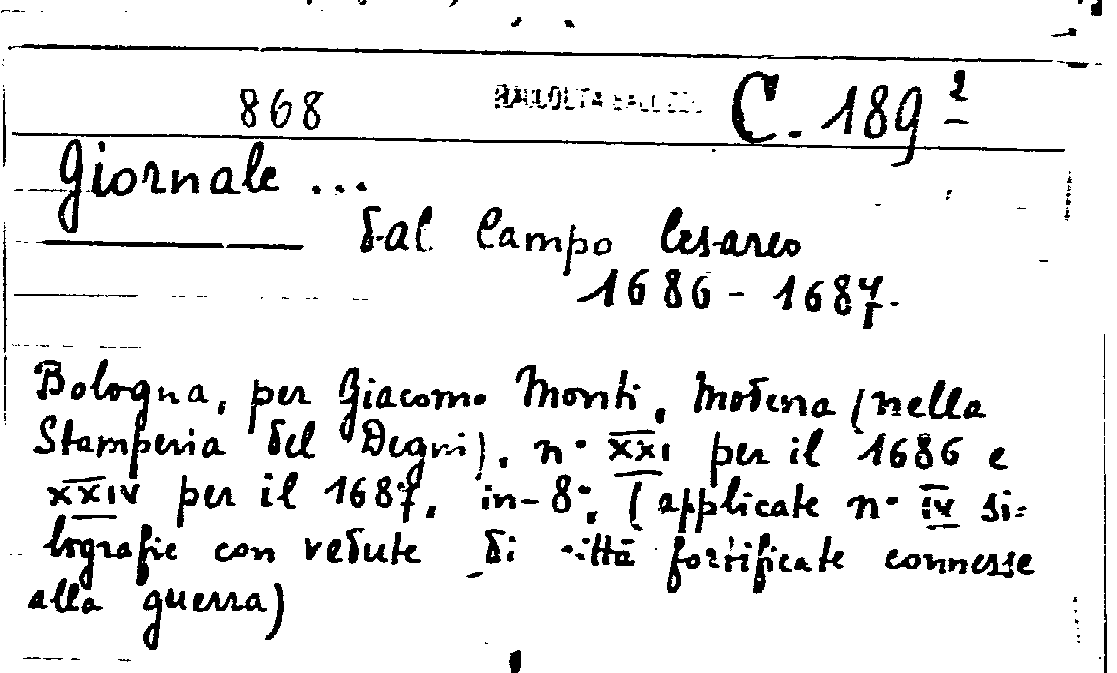 868 RACCOLTA C. 189²
Giornale ...
dal Campo Cesareo
1686 - 1687.
Bologna, per Giacomo Monti, Modena (nella
Stamperia del Degni), n° XXI per il 1686 e
XXIV per il 1687, in-8°, (applicate n° IV si-
lografie con vedute di città fortificate connesse
alla guerra)